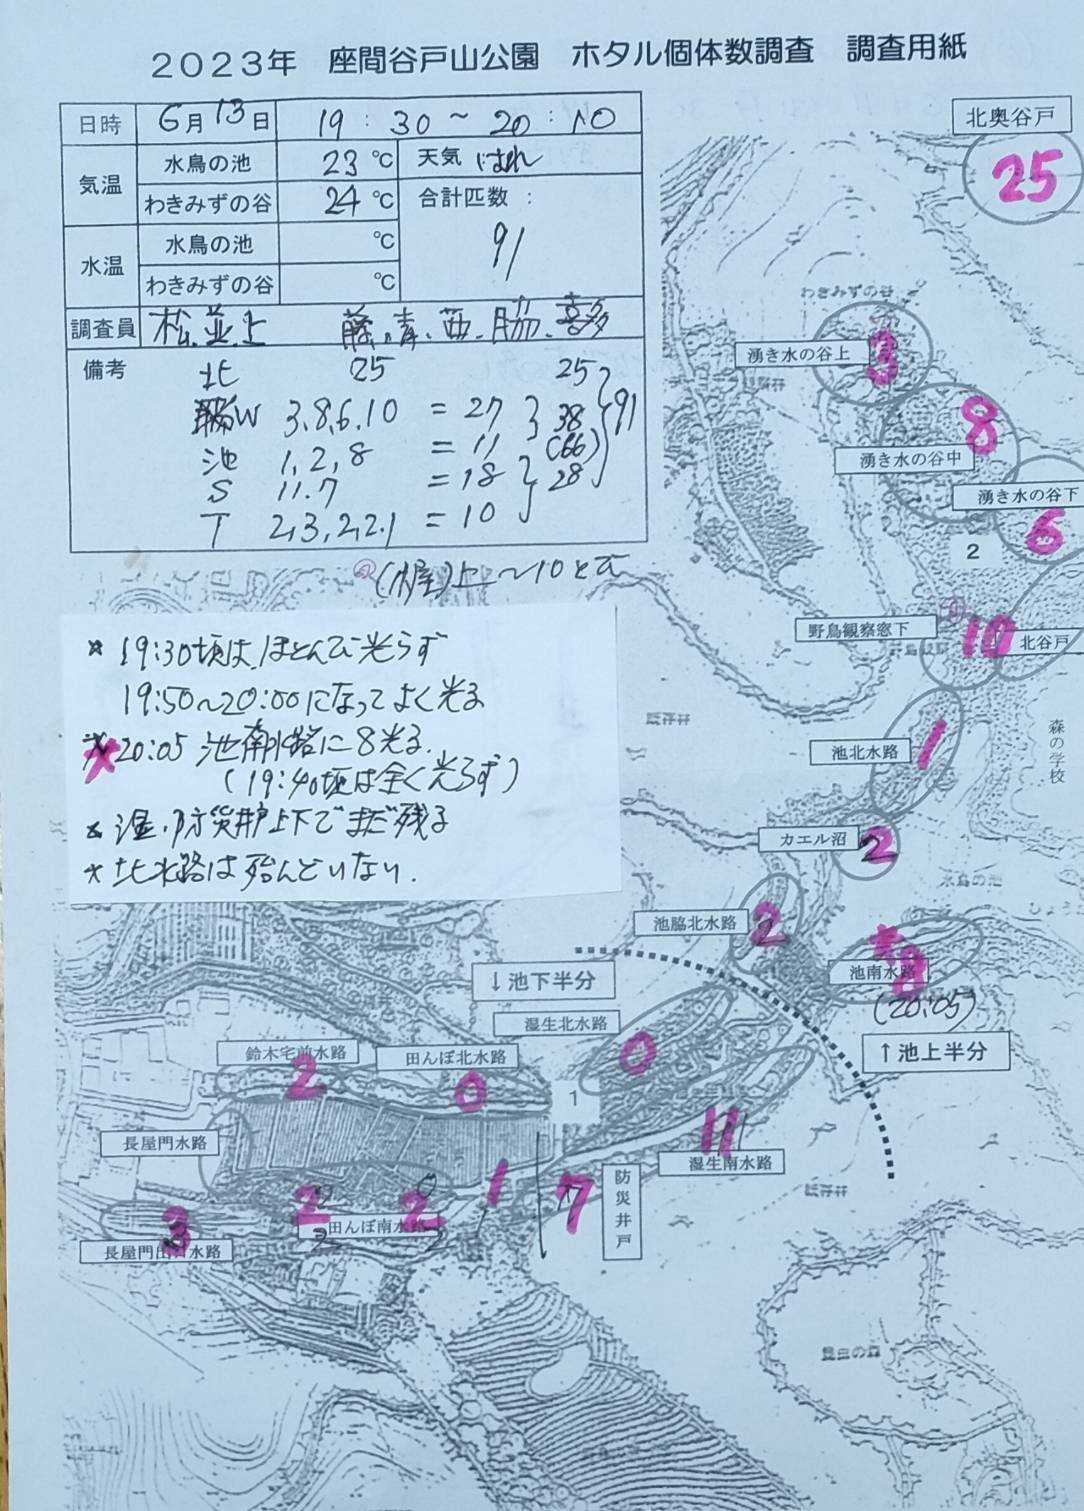 2023年 座間谷戸山公園 ホタル個体数調査 調査用紙
日時 6月13日 19:30~20:10
気温 水鳥の池 23℃ 天気 はれ
わきみずの谷 24℃ 合計匹数:
91
水温 水鳥の池 ℃
わきみずの谷 ℃
調査員 松.並.上 藤.青.西.脇.喜多
備考
北 25 25
W 3,8,6,10 = 27
38
91
池 1,2,8 = 11
(66)
S 11.7 = 18
28
T 2,3,2,2,1 = 10
上~10とぶ
* 19:30頃はほとんど光らず
19:50~20:00になってよく光る
* 20:05 池南水路に8光る.
(19:40頃は全く光らず)
* 湿.防災井戸上下でまだ残る
* 北水路は殆んどいない.
北奥谷戸
25
わきみずの谷
湧き水の谷上
3
湧き水の谷中
8
湧き水の谷下
6
2
野鳥観察窓下
10
北谷戸
既存井
森の学校
池北水路
1
カエル沼
2
水鳥の池
池脇北水路
2
池南水路
*8
(20:05)
↓池下半分
↑池上半分
湿生北水路
0
鈴木宅前水路
2
田んぼ北水路
0
1
長屋門水路
湿生南水路
11
防災井戸
7
1
田んぼ南水路
2
2
長屋門出口水路
3
既存井
昆虫の森